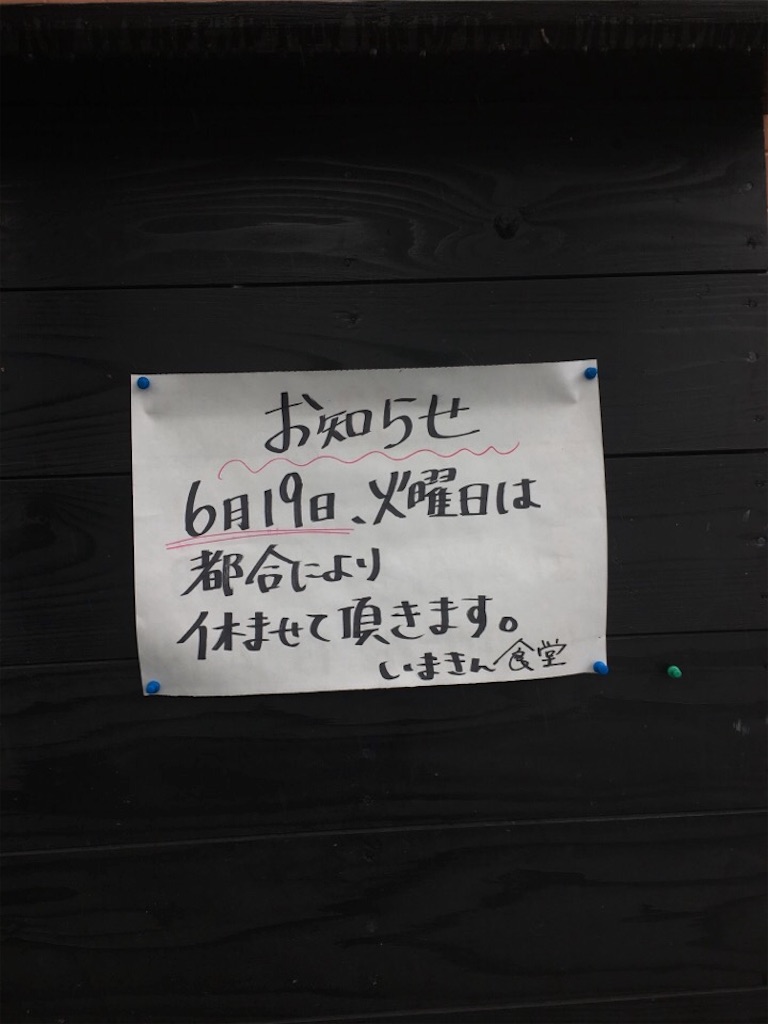 お知らせ
6月19日、火曜日は
都合により
休ませて頂きます。
いまきん食堂